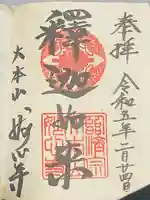 奉拝
令和五年二月廿四日
釋迦如来
大本山 妙心寺